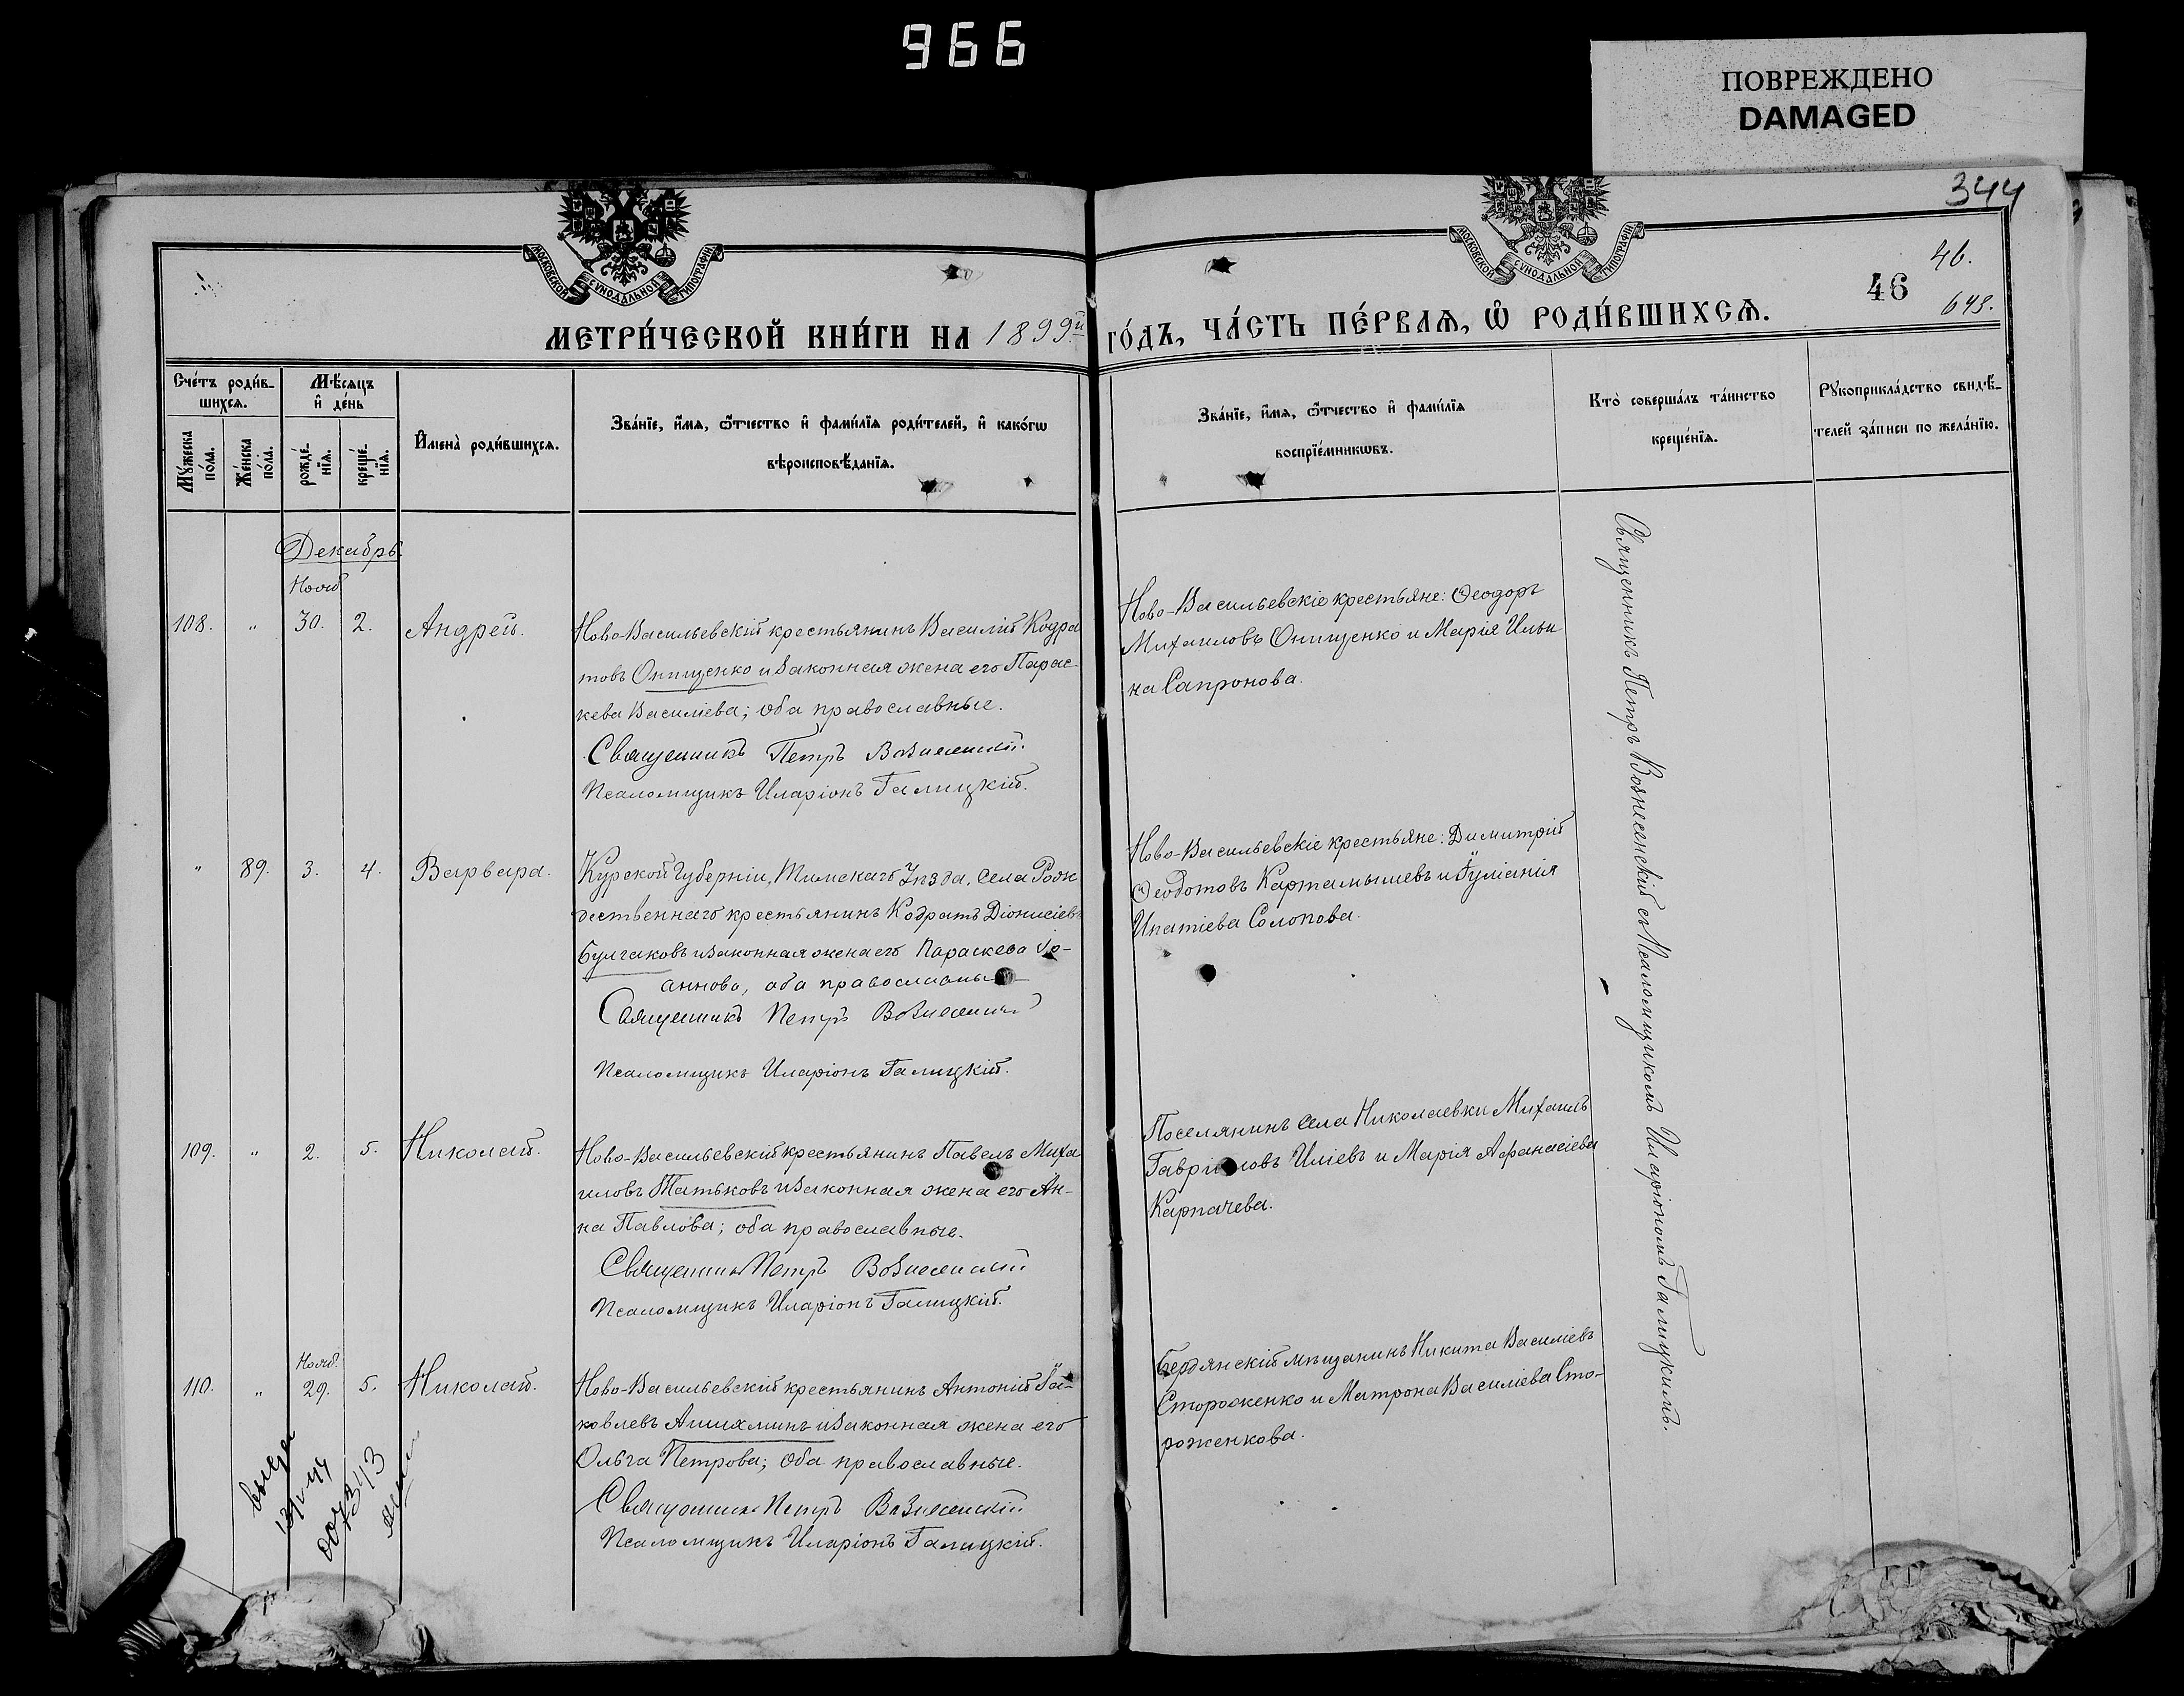 966
ПОВРЕЖДЕНО
DAMAGED
344
46.
46
643.
МОСКОВСКОЙ СѴНОДАЛЬНОЙ ТИПОГРАФІИ
МОСКОВСКОЙ СѴНОДАЛЬНОЙ ТИПОГРАФІИ
МЕТРИ́ЧЕСКОЙ КНИ́ГИ НА 1899й
ГО́ДЪ, ЧА́СТЬ ПЕ́РВАѦ, Ѽ РОДИ́ВШИХСѦ.
Сче́тъ роди́в-
шихсѧ.
Мꙋ́жеска по́ла.
Же́нска по́ла.
Мѣ́сяцъ
и҆ де́нь
рожде́-
нїѧ.
креще́-
нїѧ.
И҆мена̀ роди́вшихсѧ.
Зва́нїе, и҆́мѧ, ѻ҆́тчество и҆ фами́лїѧ роди́телей, и҆ како́гѡ
вѣроисповѣ́данїѧ.
Зва́нїе, и҆́мѧ, ѻ҆́тчество и҆ фами́лїѧ
воспрїе́мникѡвъ.
Кто̀ соверша́лъ та́инство
креще́нїѧ.
Рꙋкоприкла́дство свидѣ́-
телей за́писи по жела́нїю.
Декабрь.
Нояб.
108. " 30. 2. Андрей.
Ново-Васильевскій крестьянинъ Василій Кодра
товъ Онищенко и законная жена его Парас-
кева Василіева; оба православные.
Священникъ Петръ Вознесенскій.
Псаломщикъ Иларіонъ Галицкій.
Ново-Васильевскіе крестьяне: Ѳеодоръ
Михаиловъ Онищенко и Марія Ильи
на Сапронова.
" 89. 3. 4. Варвара.
Курской Губерніи, Тимскаго Уѣзда, села Рож
дественнаго крестьянинъ Кодратъ Діонисіевъ
Булгаковъ и законная жена его Параскева Іо-
аннова, оба православные
Священникъ Петръ Вознесенскій
Псаломщикъ Иларіонъ Галицкій.
Ново-Васильевскіе крестьяне: Димитрій
Ѳеодотовъ Картамышевъ и Іуліанія
Ипатіева Солопова.
109. " 2. 5. Николай.
Ново-Васильевскій крестьянинъ Павелъ Миха
иловъ Татьковъ и законная жена его Ан-
на Павлова; оба православные.
Священникъ Петръ Вознесенскій
Псаломщикъ Иларіонъ Галицкій.
Поселянинъ села Николаевки Михаилъ
Гавріиловъ Иліевъ и Марія Аѳанасіева
Карпачева.
Нояб.
110. " 29. 5. Николай.
Ново-Васильевскій крестьянинъ Антоній Іа-
ковлевъ Анишяминъ и законная жена его
Ольга Петрова; оба православные.
Священникъ Петръ Вознесенскій
Псаломщикъ Иларіонъ Галицкій.
Бердянскій мѣщанинъ Никита Василіевъ
Стороженко и Матрона Василіева Сто-
роженкова.
Священникъ Петръ Вознесенскій съ Псаломщикомъ Иларіономъ Галицкимъ.